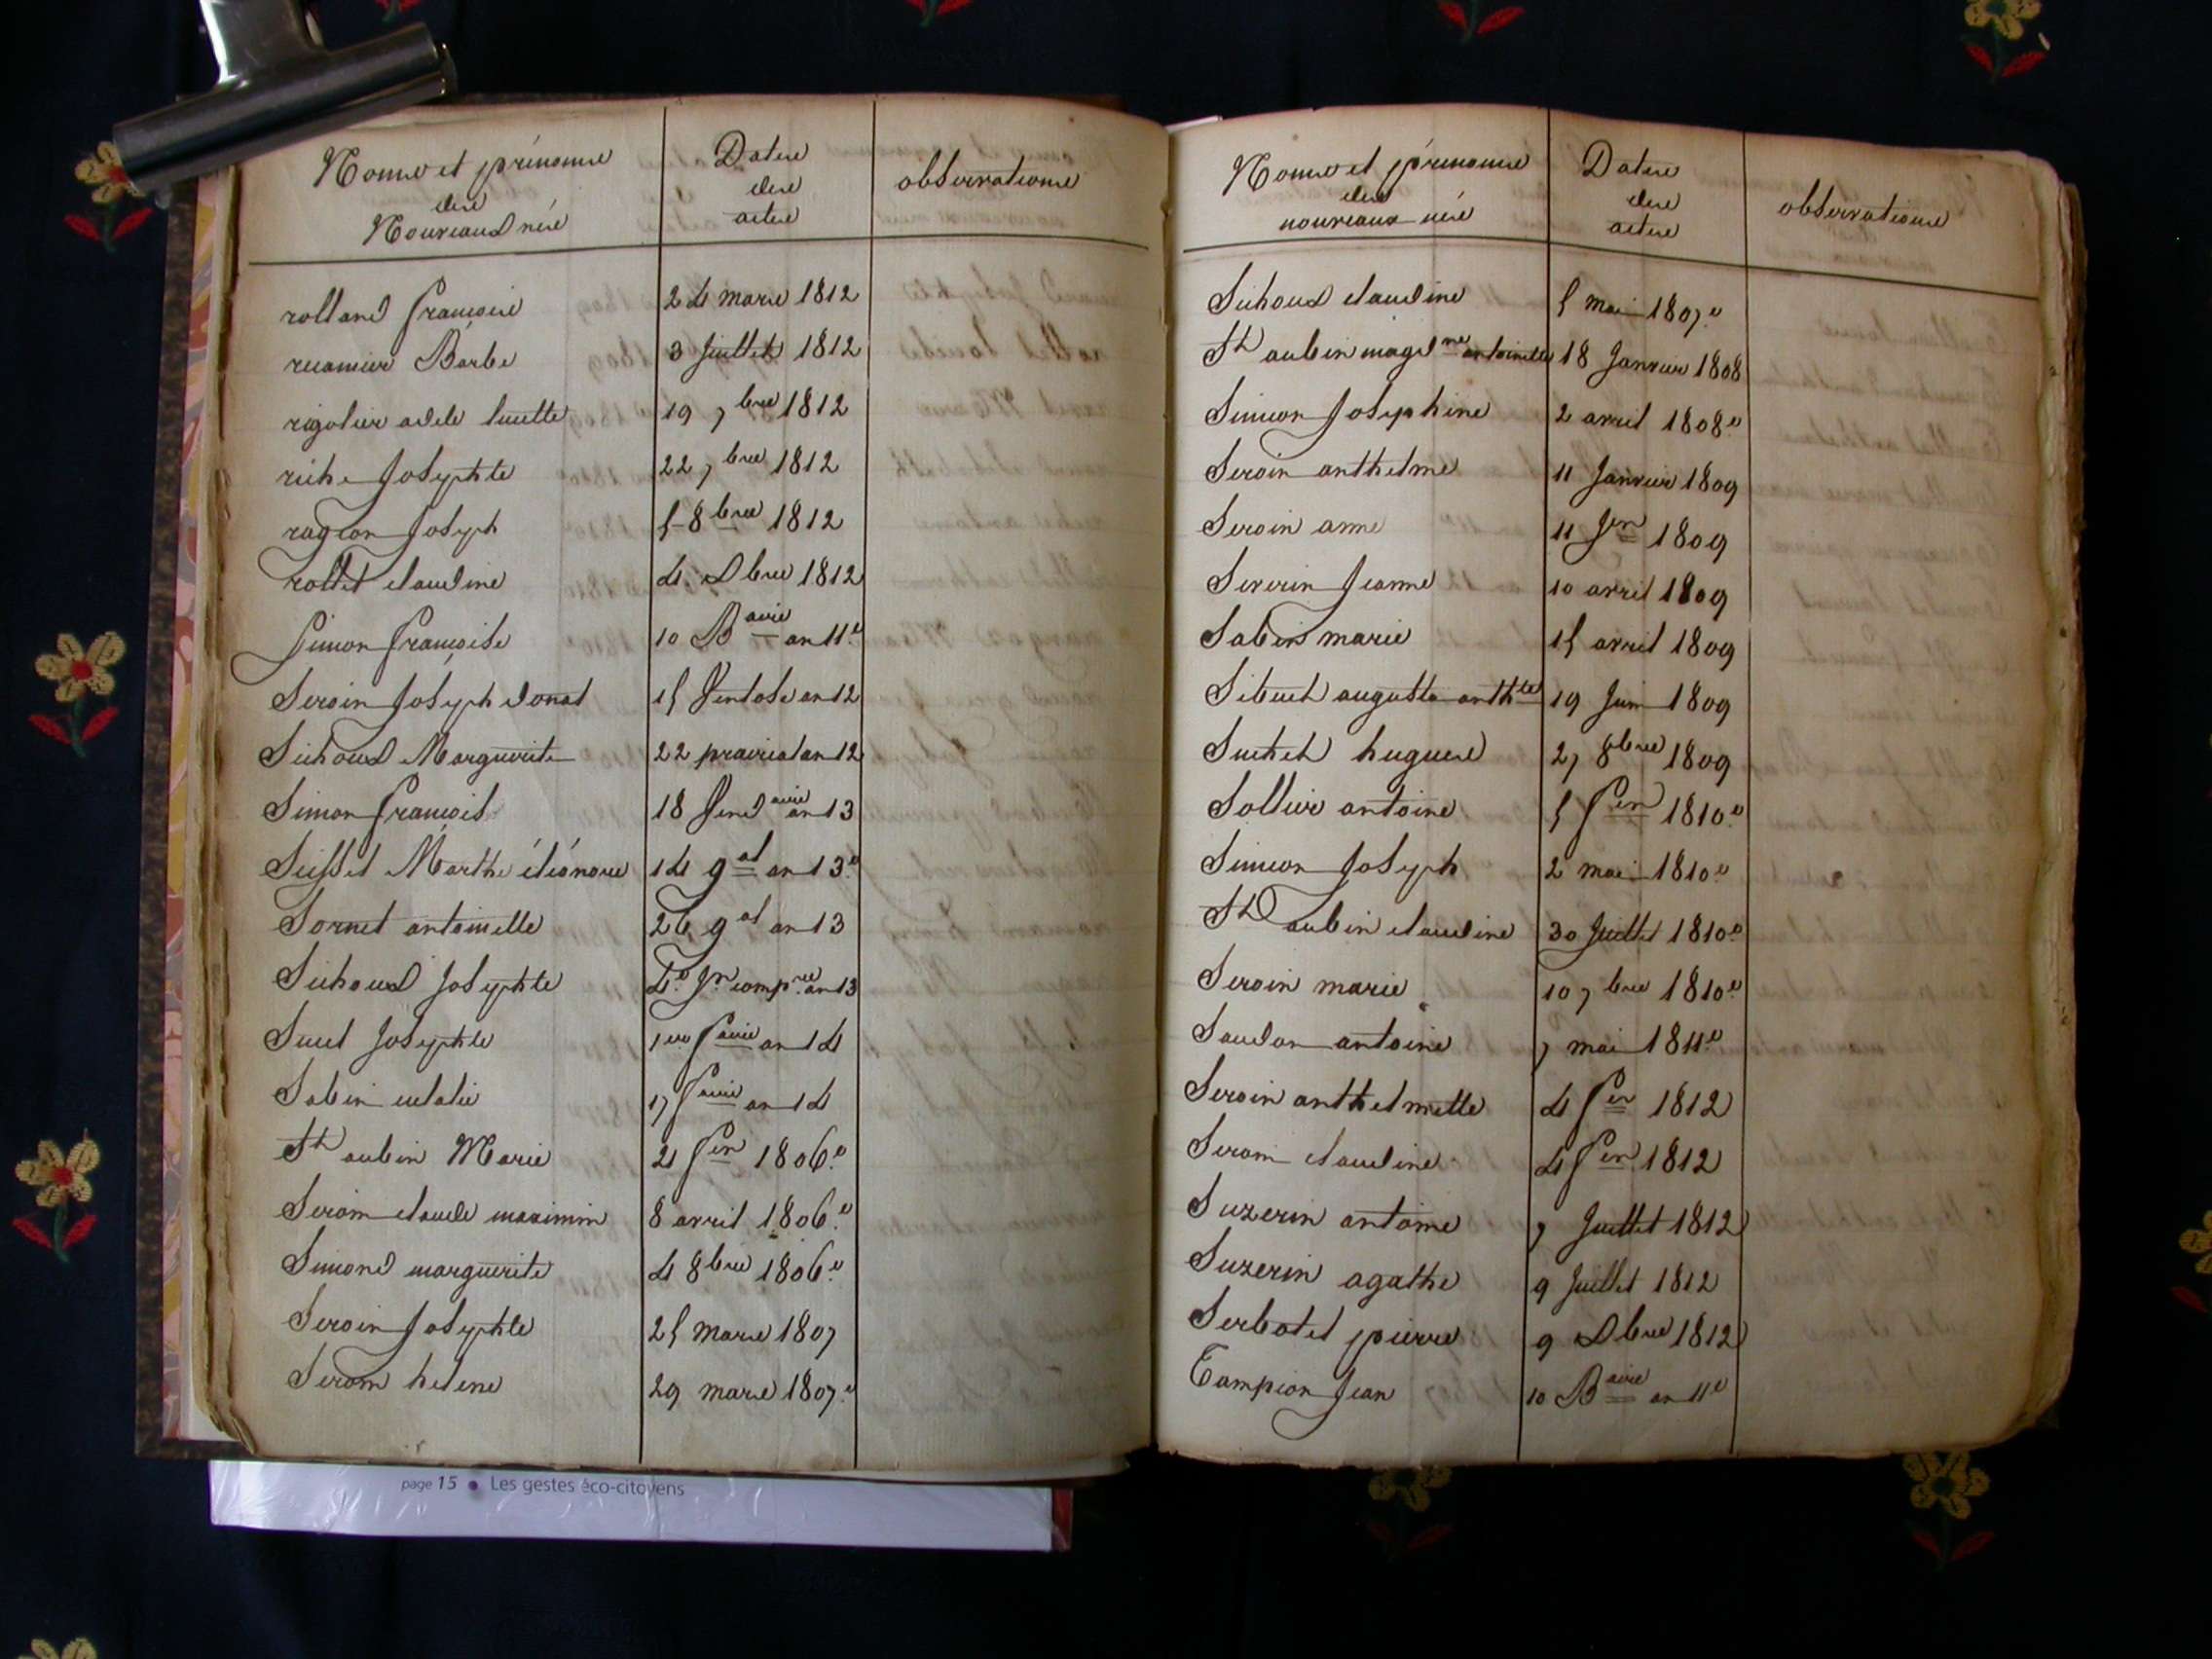 Noms et prénoms des Nouveaux nés | Dates des actes | observations
rolland françois | 24 mars 1812
recamier Barbe | 3 Juillet 1812
rigolier adele lucette | 19 7bre 1812
riche Josephte | 22 7bre 1812
rageon Joseph | 5 8bre 1812
rollet claudine | 4 Dbre 1812
Simon françoise | 10 Baire an 11e
Seroin Joseph donat | 15 Ventose an 12
Sichoud Marguerite | 22 prairial an 12
Simon françois | 18 Vendaire an 13
Suisset Marthe éléonore | 14 gal an 13e
Sornet antoinette | 26 gal an 13
Sichoud Josephte | 4e Jr compre an 13
Suet Josephte | 1er faire an 14
Sabin eulalie | 17 faire an 14
St aubin Marie | 21 fer 1806e
Seroin claude maximin | 8 avril 1806e
Simond marguerite | 4 8bre 1806e
Seroin Josephte | 25 mars 1807
Seroin helene | 29 mars 1807e
Noms et prénoms des nouveaux nés | Dates des actes | observations
Sichoud claudine | 5 mai 1807e
St aubin magdne antoinette | 18 Janvier 1808
Simeon Josephine | 2 avril 1808e
Seroin anthelme | 11 Janvier 1809
Seroin anne | 11 Jer 1809
Severin Jeanne | 10 avril 1809
Sabin marie | 15 avril 1809
Sibuet augusta anthte | 19 Juin 1809
Suchet hugues | 27 8bre 1809
Sollier antoine | 5 fer 1810e
Simeon Joseph | 2 mai 1810e
St aubin claudine | 30 Juillet 1810e
Seroin marie | 10 7bre 1810e
Saudon antoine | 7 mai 1811e
Seroin anthelmette | 4 fer 1812
Seroin claudine | 4 fer 1812
Suzerin antoine | 7 Juillet 1812
Suzerin agathe | 9 Juillet 1812
Serbotel pierre | 9 Dbre 1812
Tampion Jean | 10 Baire an 11e
page 15 • Les gestes éco-citoyens